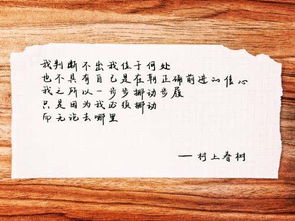 我判断不出我位于何处
也不具有自己是在朝正确前进的信心
我之所以一步步挪动步履
只是因为我必须挪动
而无论去哪里
——村上春树